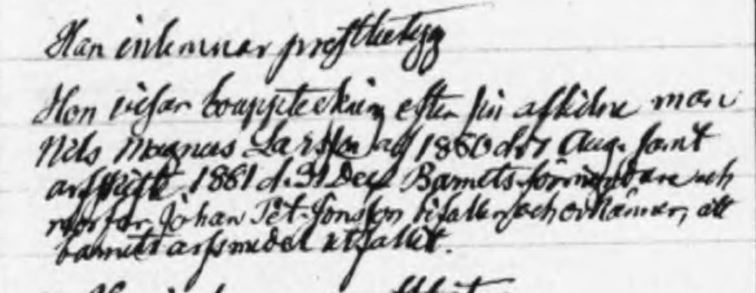 Han inlemnar prestbetyg
Hon visar bouppteckning efter sin aflidne man
Nils Magnus Larsson af 1860 d. Aug. samt
arfskifte 1861 d. 31 Dec. Barnets förmyndare och
morfar Johan Pet. Jonsson bifaller och erkänner, att
barnets arfsmedel utfallit.